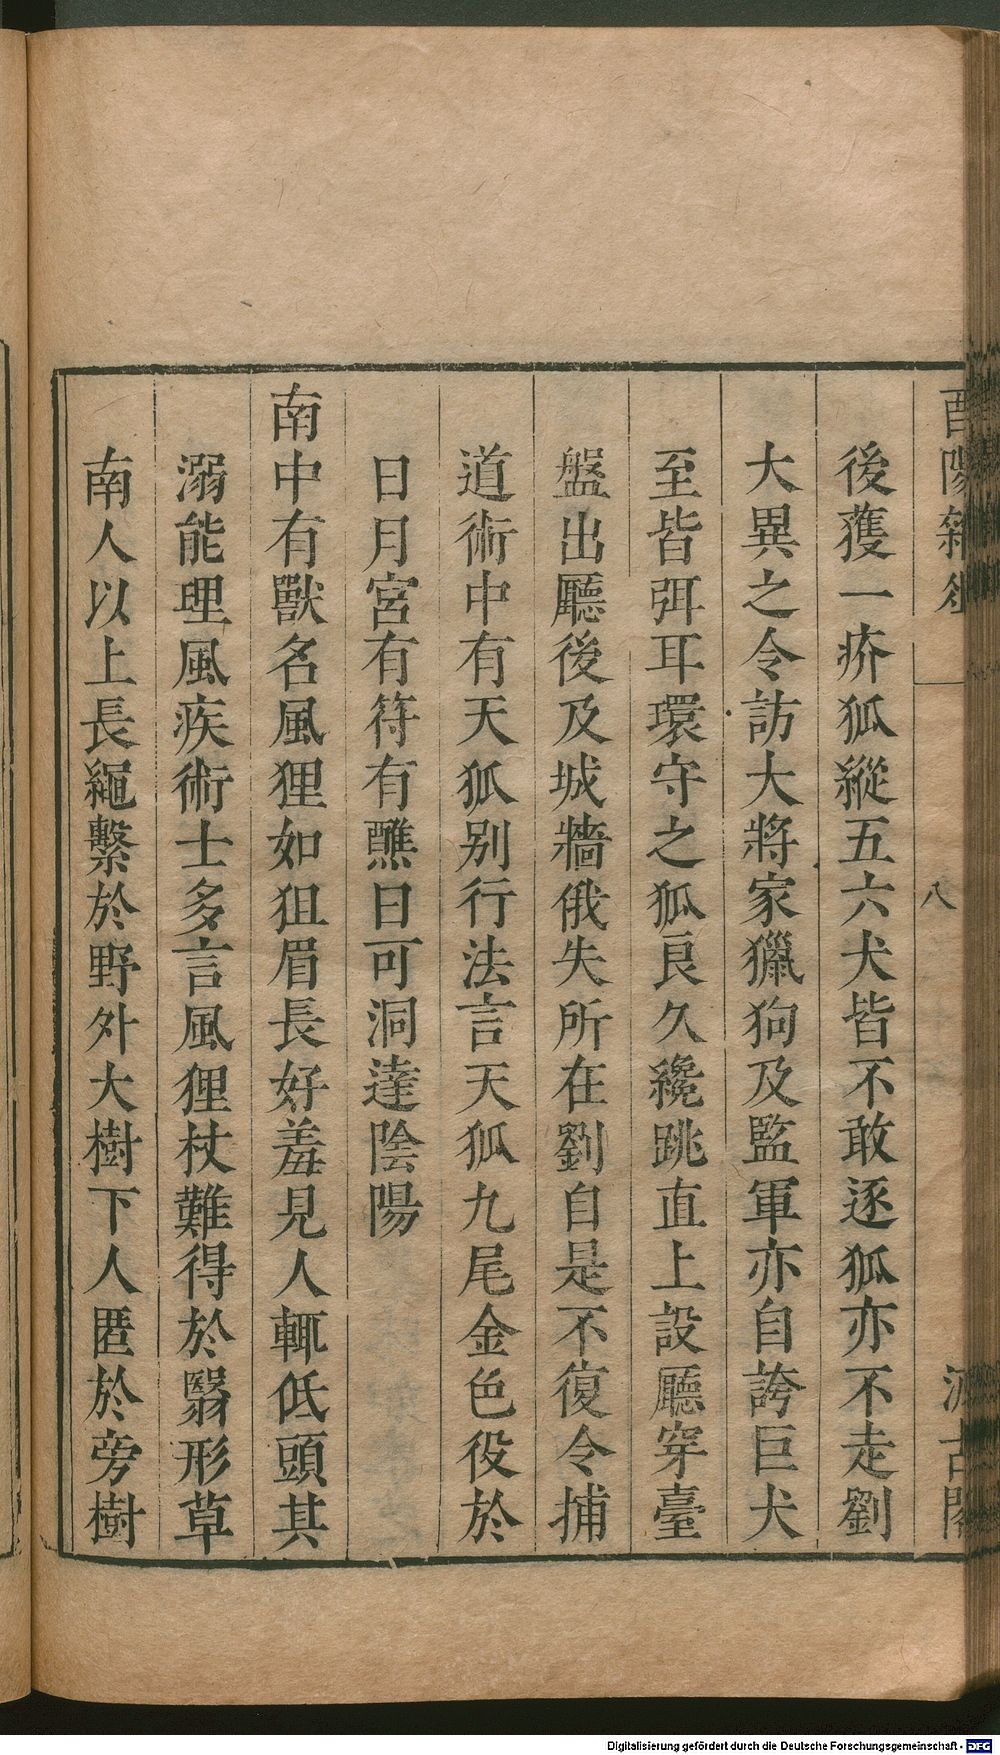 酉陽雜俎
八
汲古閣
後獲一疥狐縱五六犬皆不敢逐狐亦不走劉
大異之令訪大將家獵狗及監軍亦自誇巨犬
至皆弭耳環守之狐良久纔跳直上設廳穿臺
盤出廳後及城牆俄失所在劉自是不復令捕
道術中有天狐別行法言天狐九尾金色役於
日月宮有符有醮日可洞達陰陽
南中有獸名風狸如狙眉長好羞見人輒低頭其
溺能理風疾術士多言風狸杖難得於翳形草
南人以上長繩繫於野外大樹下人匿於旁樹
Digitalisierung gefördert durch die Deutsche Forschungsgemeinschaft - DFG